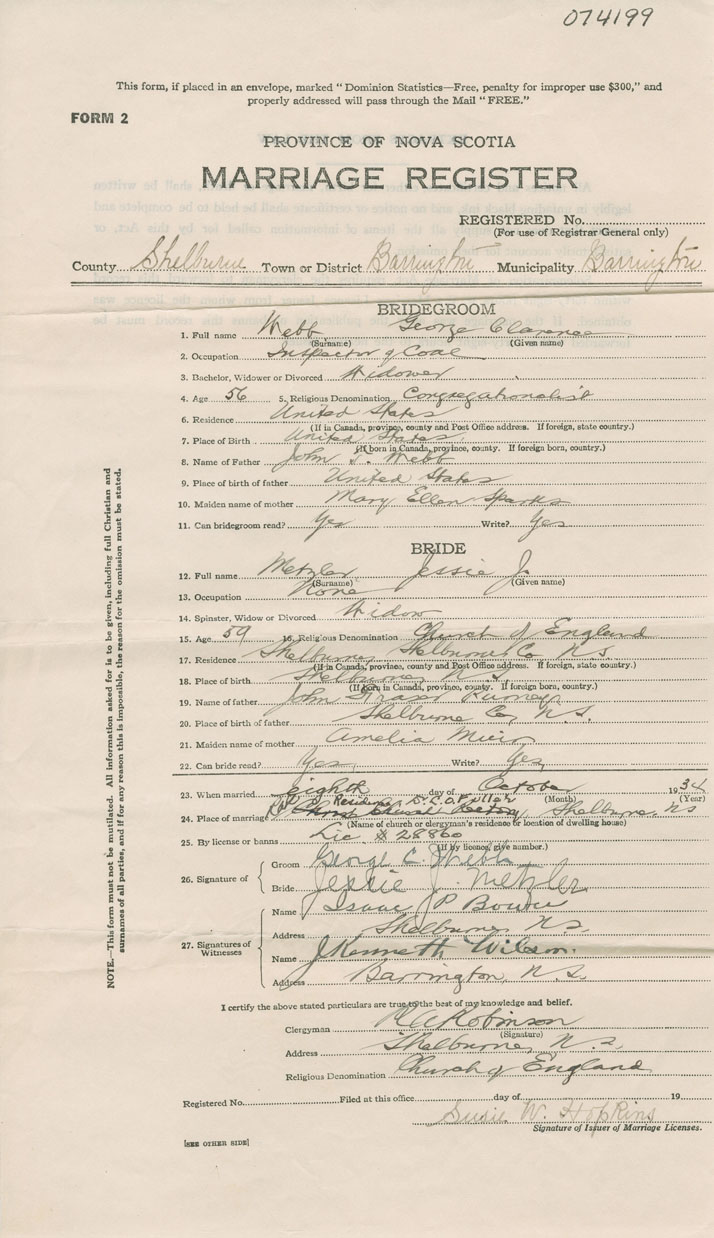 074199
This form, if placed in an envelope, marked "Dominion Statistics—Free, penalty for improper use $300," and
properly addressed will pass through the Mail "FREE."
FORM 2
PROVINCE OF NOVA SCOTIA
MARRIAGE REGISTER
REGISTERED No.
(For use of Registrar General only)
County Shelburne Town or District Barrington Municipality Barrington
BRIDEGROOM
1. Full name Webb George Clarence
(Surname) (Given name)
2. Occupation Inspector of Coal
3. Bachelor, Widower or Divorced Widower
4. Age 56 5. Religious Denomination Congregationalist
6. Residence United States
(If in Canada, province, county and Post Office address. If foreign, state country.)
7. Place of Birth United States
(If born in Canada, province, county. If foreign born, country.)
8. Name of Father John T. Webb
9. Place of birth of father United States
10. Maiden name of mother Mary Ellen Sparks
11. Can bridegroom read? Yes Write? Yes
BRIDE
12. Full name Metzler Jessie J.
(Surname) (Given name)
13. Occupation None
14. Spinster, Widow or Divorced Widow
15. Age 59 16. Religious Denomination Church of England
17. Residence Shelburne, Shelburne Co N.S.
(If in Canada, province, county and Post Office address. If foreign, state country.)
18. Place of birth Shelburne, N.S.
(If born in Canada, province, county. If foreign born, country.)
19. Name of father John Fraser
20. Place of birth of father Shelburne Co, N.S.
21. Maiden name of mother Amelia Muir
22. Can bride read? Yes Write? Yes
23. When married eighth day of October 1934
(Month) (Year)
Residence Dr. L.O. Fuller
24. Place of marriage Shelburne, NS
(Name of church or clergyman's residence or location of dwelling house)
25. By license or banns Lic # 28860
(If by licence, give number.)
26. Signature of Groom George C. Webb
Bride Jessie J. Metzler
Name Isaac P Bower
Address Shelburne, NS
27. Signatures of Witnesses
Name J Kenneth Wilson.
Address Barrington, N.S.
I certify the above stated particulars are true to the best of my knowledge and belief.
Clergyman R A Robinson
(Signature)
Address Shelburne, N.S.
Religious Denomination Church of England
Registered No. Filed at this office day of 19
Susie W. Hopkins
Signature of Issuer of Marriage Licenses.
[SEE OTHER SIDE]
NOTE.—This form must not be mutilated. All information asked for is to be given, including full Christian and
surnames of all parties, and if for any reason this is impossible, the reason for the omission must be stated.